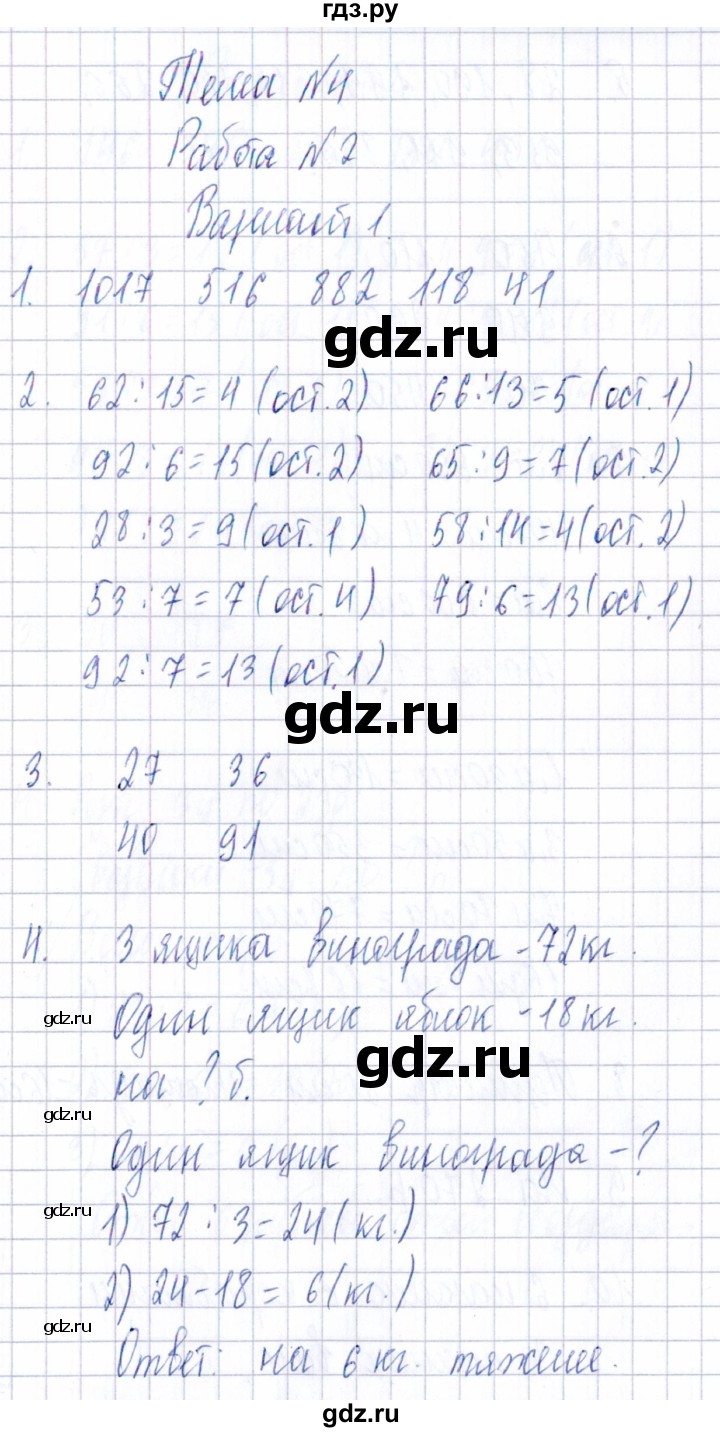 гдз.ру
Тема №4
Работа №2
Вариант 1.
1. 1017 516 882 118 41
gdz.ru
2. 62:15=4(ост.2) 66:13=5(ост.1)
92:6=15(ост.2) 65:9=7(ост.2)
28:3=9(ост.1) 58:14=4(ост.2)
53:7=7(ост.4) 79:6=13(ост.1)
92:7=13(ост.1)
gdz.ru
3. 27 36
40 91
4. 3 ящика винограда - 72 кг.
gdz.ru Один ящик яблок - 18 кг.
gdz.ru
на ? б.
gdz.ru
Один ящик винограда - ?
gdz.ru 1) 72:3=24(кг.)
2) 24-18=6(кг.)
gdz.ru
Ответ: на 6 кг. тяжелее.
gdz.ru